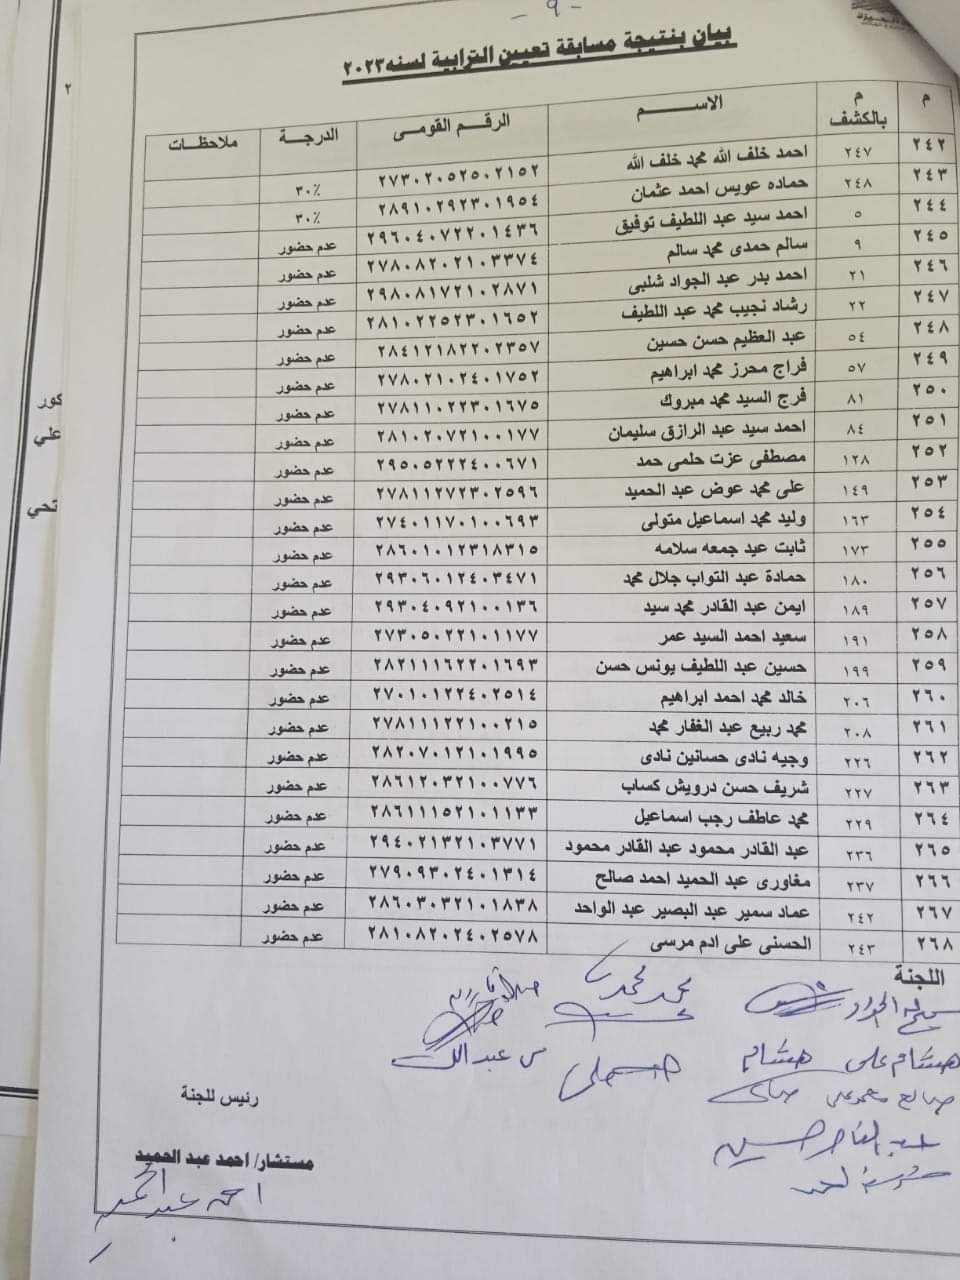 - ٩ -
بيان بنتيجة مسابقة تعيين الترابية لسنه ٢٠٢٣
م م بالكشف الاســـــم الرقـم القومـى الدرجـة ملاحظـات
٢٤٢ ٢٤٧ احمد خلف الله محمد خلف الله ٢٧٣٠٢٠٥٢٥٠٢١٥٢ ٣٠٪
٢٤٣ ٢٤٨ حماده عويس احمد عثمان ٢٨٩١٠٢٩٢٣٠١٩٥٤ ٣٠٪
٢٤٤ ٥ احمد سيد عبد اللطيف توفيق ٢٩٦٠٤٠٧٢٢٠١٤٣٦ عدم حضور
٢٤٥ ٩ سالم حمدى محمد سالم ٢٧٨٠٨٢٠٢١٠٣٣٧٤ عدم حضور
٢٤٦ ٢١ احمد بدر عبد الجواد شلبى ٢٩٨٠٨١٧٢١٠٢٨٧١ عدم حضور
٢٤٧ ٢٢ رشاد نجيب محمد عبد اللطيف ٢٨١٠٢٢٥٢٣٠١٦٥٢ عدم حضور
٢٤٨ ٥٤ عبد العظيم حسن حسين ٢٨٤١٢١٨٢٢٠٢٣٥٧ عدم حضور
٢٤٩ ٥٧ فراج محرز محمد ابراهيم ٢٧٨٠٢١٠٢٤٠١٧٥٢ عدم حضور
٢٥٠ ٨١ فرج السيد محمد مبروك ٢٧٨١١٠٢٢٣٠١٦٧٥ عدم حضور
٢٥١ ٨٤ احمد سيد عبد الرازق سليمان ٢٨١٠٢٠٧٢١٠٠١٧٧ عدم حضور
٢٥٢ ١٢٨ مصطفى عزت حلمى حمد ٢٩٥٠٥٢٢٢٤٠٠٦٧١ عدم حضور
٢٥٣ ١٤٩ على محمد عوض عبد الحميد ٢٧٨١١٢٧٢٣٠٢٥٩٦ عدم حضور
٢٥٤ ١٦٣ وليد محمد اسماعيل متولى ٢٧٤٠١١٧٠١٠٠٦٩٣ عدم حضور
٢٥٥ ١٧٣ ثابت عيد جمعه سلامه ٢٨٦٠١٠١٢٣١٨٣١٥ عدم حضور
٢٥٦ ١٨٠ حمادة عبد التواب جلال محمد ٢٩٣٠٦٠١٢٤٠٣٤٧١ عدم حضور
٢٥٧ ١٨٩ ايمن عبد القادر محمد سيد ٢٩٣٠٤٠٩٢١٠٠١٣٦ عدم حضور
٢٥٨ ١٩١ سعيد احمد السيد عمر ٢٧٣٠٥٠٢٢١٠١١٧٧ عدم حضور
٢٥٩ ١٩٩ حسين عبد اللطيف يونس حسن ٢٨٢١١١٦٢٢٠١٦٩٣ عدم حضور
٢٦٠ ٢٠٦ خالد محمد احمد ابراهيم ٢٧٠١٠١٢٢٤٠٢٥١٤ عدم حضور
٢٦١ ٢٠٨ محمد ربيع عبد الغفار محمد ٢٧٨١١١٢٢١٠٠٢١٥ عدم حضور
٢٦٢ ٢٢٦ وجيه نادى حسانين نادى ٢٨٢٠٧٠١٢١٠١٩٩٥ عدم حضور
٢٦٣ ٢٢٧ شريف حسن درويش كساب ٢٨٦١٢٠٣٢١٠٠٧٧٦ عدم حضور
٢٦٤ ٢٢٩ محمد عاطف رجب اسماعيل ٢٨٦١١١٥٢١٠١١٣٣ عدم حضور
٢٦٥ ٢٣٦ عبد القادر محمود عبد القادر محمود ٢٩٤٠٢١٣٢١٠٣٧٧١ عدم حضور
٢٦٦ ٢٣٧ مغاورى عبد الحميد احمد صالح ٢٧٩٠٩٣٠٢٤٠١٣١٤ عدم حضور
٢٦٧ ٢٤٢ عماد سمير عبد البصير عبد الواحد ٢٨٦٠٣٠٣٢١٠١٨٣٨ عدم حضور
٢٦٨ ٢٤٣ الحسنى على ادم مرسى ٢٨١٠٨٢٠٢٤٠٢٥٧٨ عدم حضور
اللجنة
هشام على هشام
رئيس للجنة
مستشار/ احمد عبد الحميد
احمد عبد الحميد
٢
كور
علي
تحي